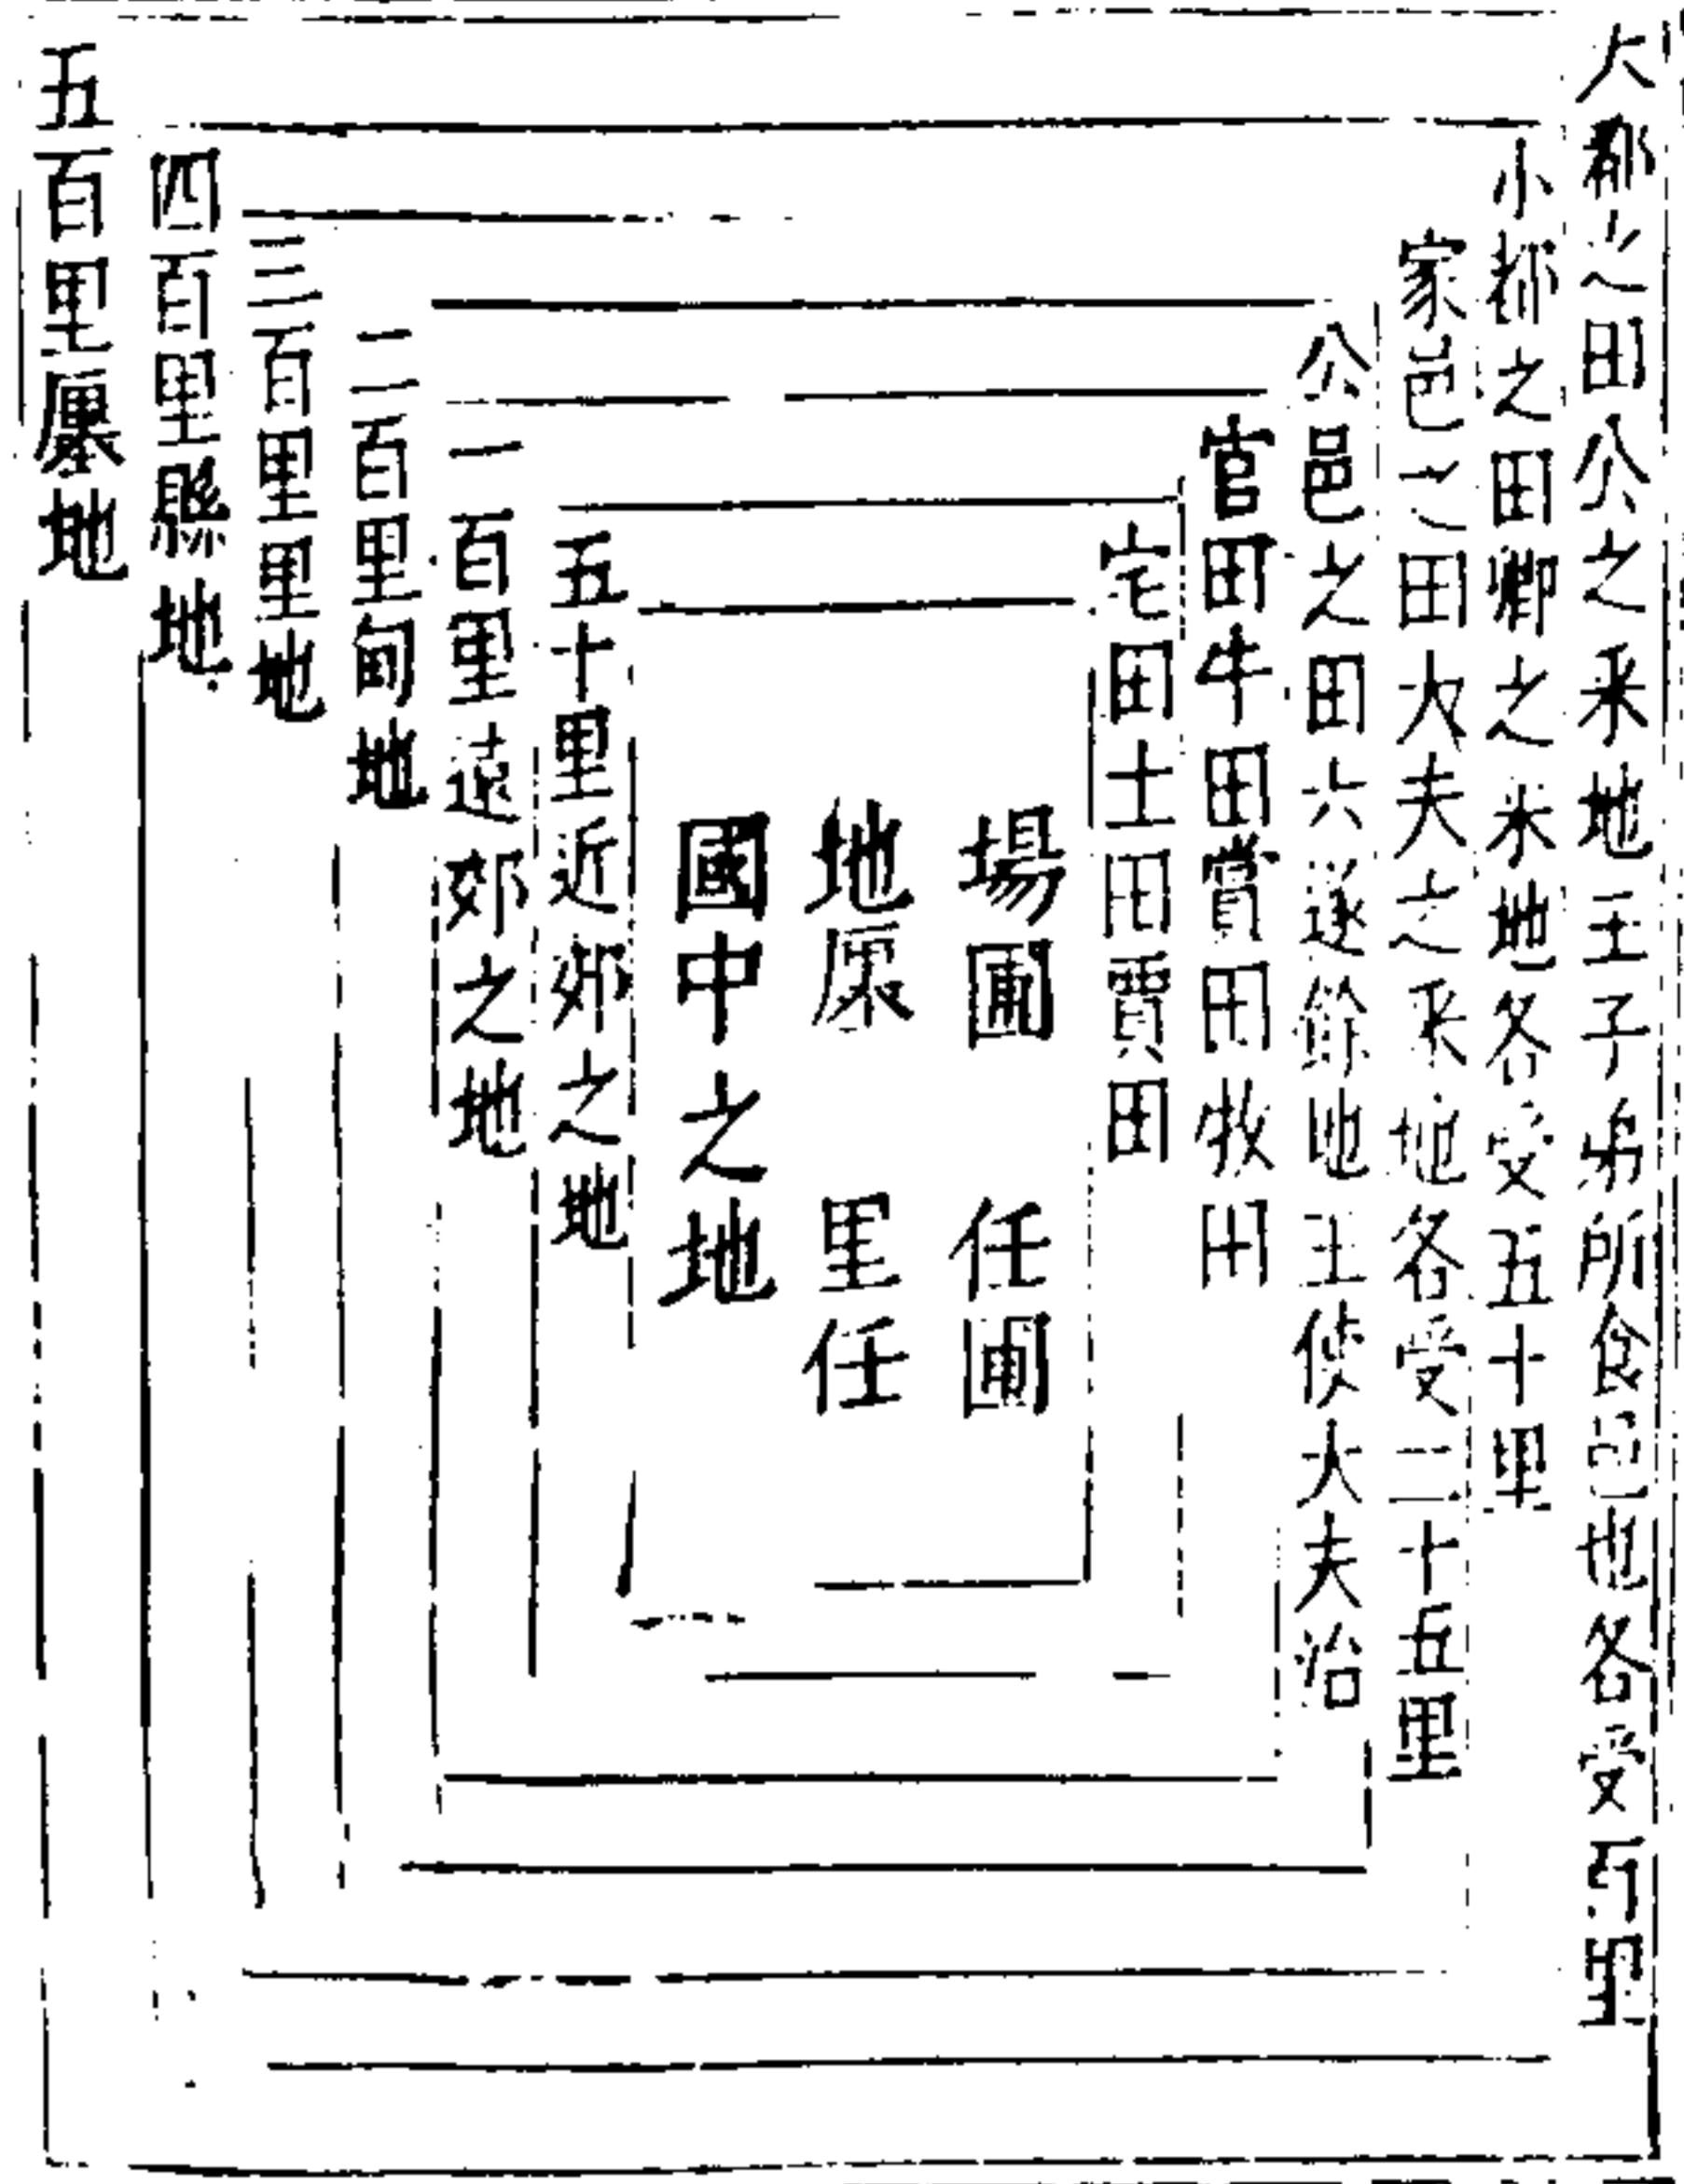 大都之田公之采地王子弟所食邑也各受百里
小都之田卿之采地各受五十里
家邑之田大夫之采地各受二十五里
公邑之田六遂餘地王使大夫治
官田牛田賞田牧田
宅田士田賈田
場圃　任圃
地廛　里任
國中之地
五十里近郊之地
一百里遠郊之地
二百里甸地
三百里里地
四百里縣地
五百里畺地